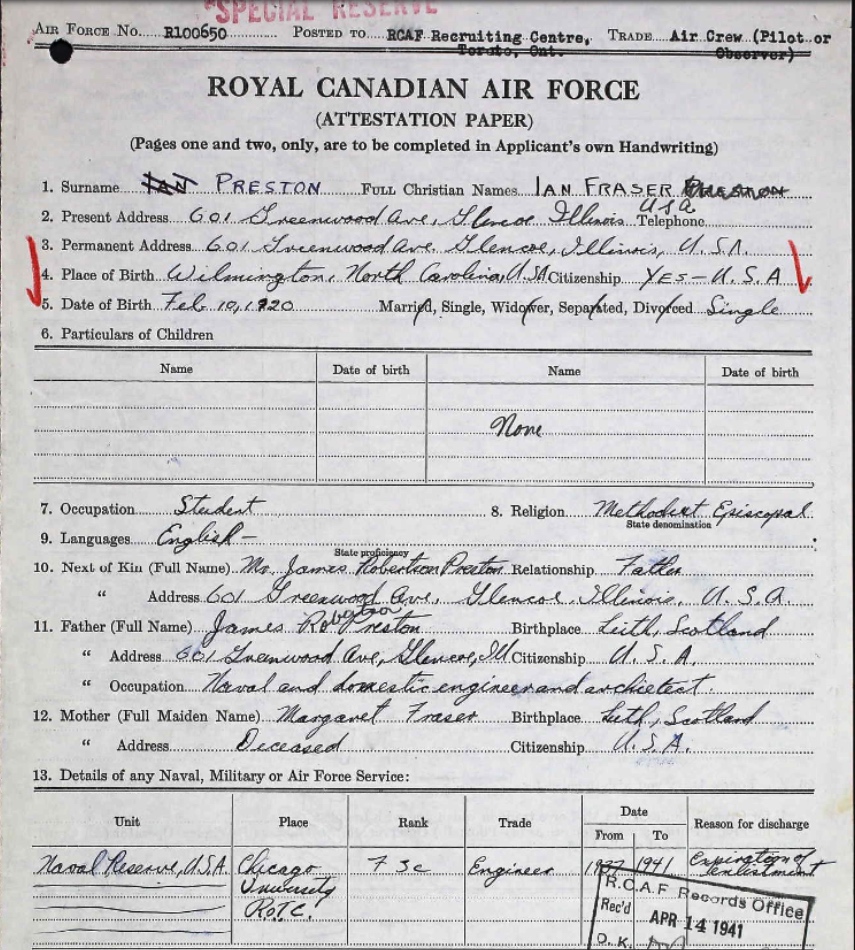 "SPECIAL RESERVE
AIR FORCE NO. R100650 POSTED TO RCAF Recruiting Centre, TRADE Air Crew (Pilot or
Toroto, Ont. Observer)
ROYAL CANADIAN AIR FORCE
(ATTESTATION PAPER)
(Pages one and two, only, are to be completed in Applicant's own Handwriting)
1. Surname IAN PRESTON FULL Christian Names IAN FRASER PRESTON
2. Present Address 601 Greenwood Ave, Glencoe Illinois USA Telephone
3. Permanent Address 601 Greenwood Ave. Glencoe, Illinois, U.S.A.
4. Place of Birth Wilmington, North Carolina, USA Citizenship YES - U.S.A
5. Date of Birth Feb 10, 1920 Married, Single, Widower, Separated, Divorced Single
6. Particulars of Children
Name Date of birth Name Date of birth
None
7. Occupation Student 8. Religion Methodist Episcopal
State denomination
9. Languages English -
State proficiency
10. Next of Kin (Full Name) Mr. James Robertson Preston Relationship Father
" Address 601 Greenwood Ave, Glencoe, Illinois, U.S.A.
Robertson
11. Father (Full Name) James Preston Birthplace Leith, Scotland
" Address 601 Greenwood Ave, Glencoe, Ill. Citizenship U.S.A.
" Occupation Naval and domestic engineer and archietect.
12. Mother (Full Maiden Name) Margaret Fraser Birthplace Leith, Scotland
" Address Deceased Citizenship U.S.A.
13. Details of any Naval, Military or Air Force Service:
Unit Place Rank Trade Date Reason for discharge
From To
Naval Reserve, U.S.A. Chicago F 3c Engineer 1937 1941 Expiration of
University enlistment
R.O.T.C.
R.C.A.F Records Office
Rec'd APR 14 1941
O. K.